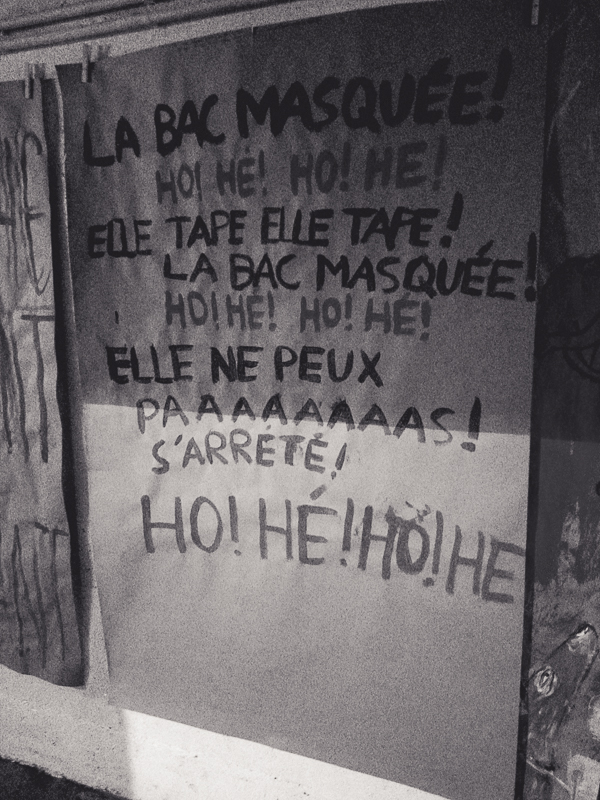 LA BAC MASQUÉE!
HO! HÉ! HO! HÉ!
ELLE TAPE ELLE TAPE!
LA BAC MASQUÉE!
HO! HÉ! HO! HÉ!
ELLE NE PEUX
PAAAAAAAAS!
S'ARRÉTÉ!
HO! HÉ! HO! HE